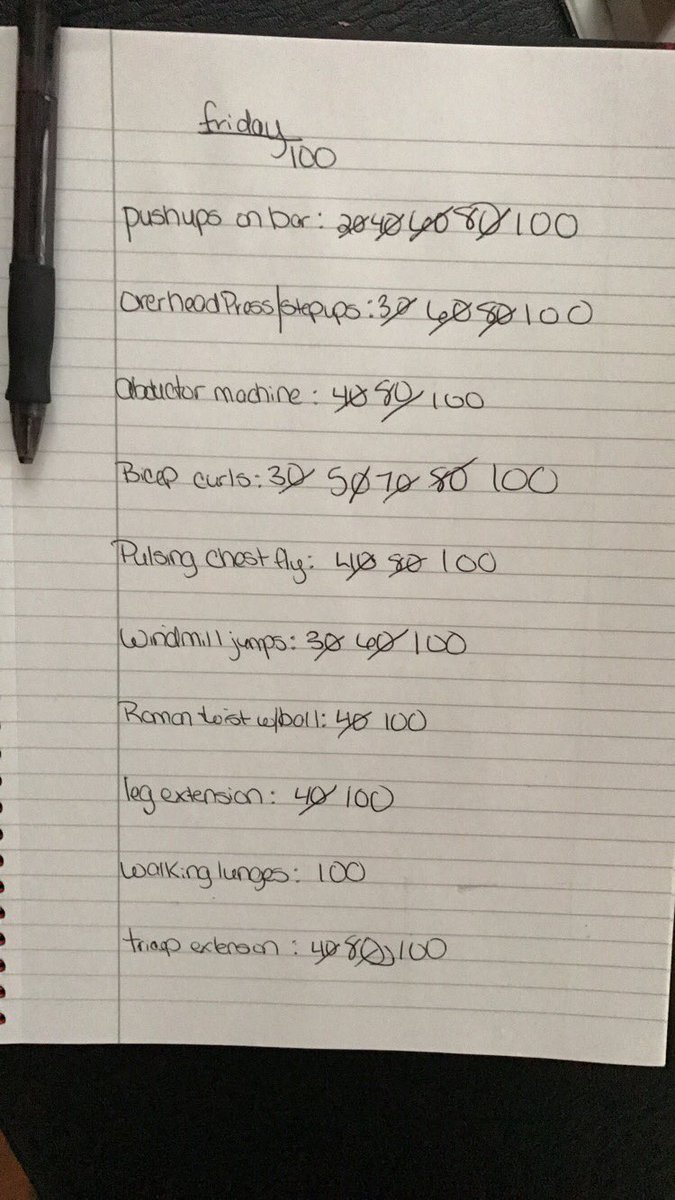 friday
100
pushups on bar: 20 40 60 80 100
Overhead Press/stepups: 30 60 80 100
abductor machine: 40 80 100
Bicep curls: 30 50 70 80 100
Pulsing chest fly: 40 80 100
Windmill jumps: 30 60 100
Roman twist w/ball: 40 100
leg extension: 40 100
walking lunges: 100
tricep extension: 40 80, 100